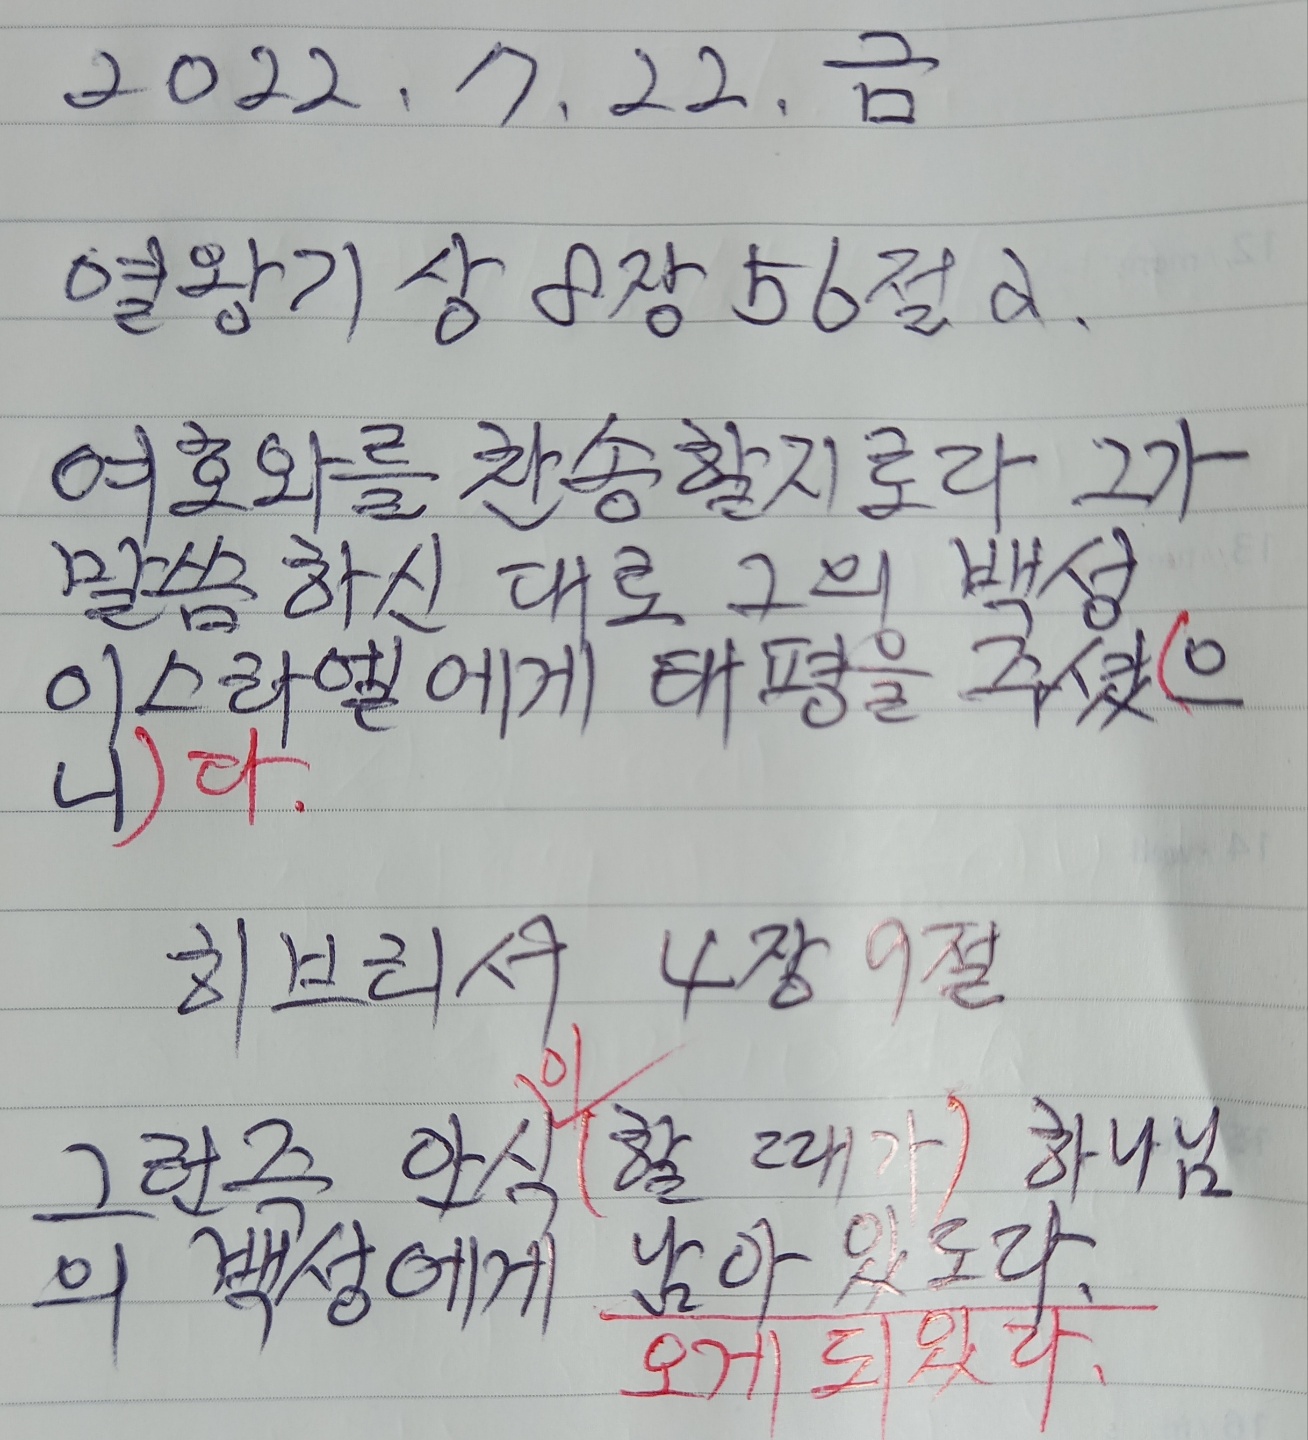 2022. 7. 22. 금
열왕기 상 8장 56절 a.
여호와를 찬송할지로다 그가
말씀 하신 대로 그의 백성
이스라엘에게 태평을 주셨(으
니) 다.
히브리서 4장 9절
이
그런즉 안식(할 때가) 하나님
의 백성에게 남아 있도다.
오게 되 있다.